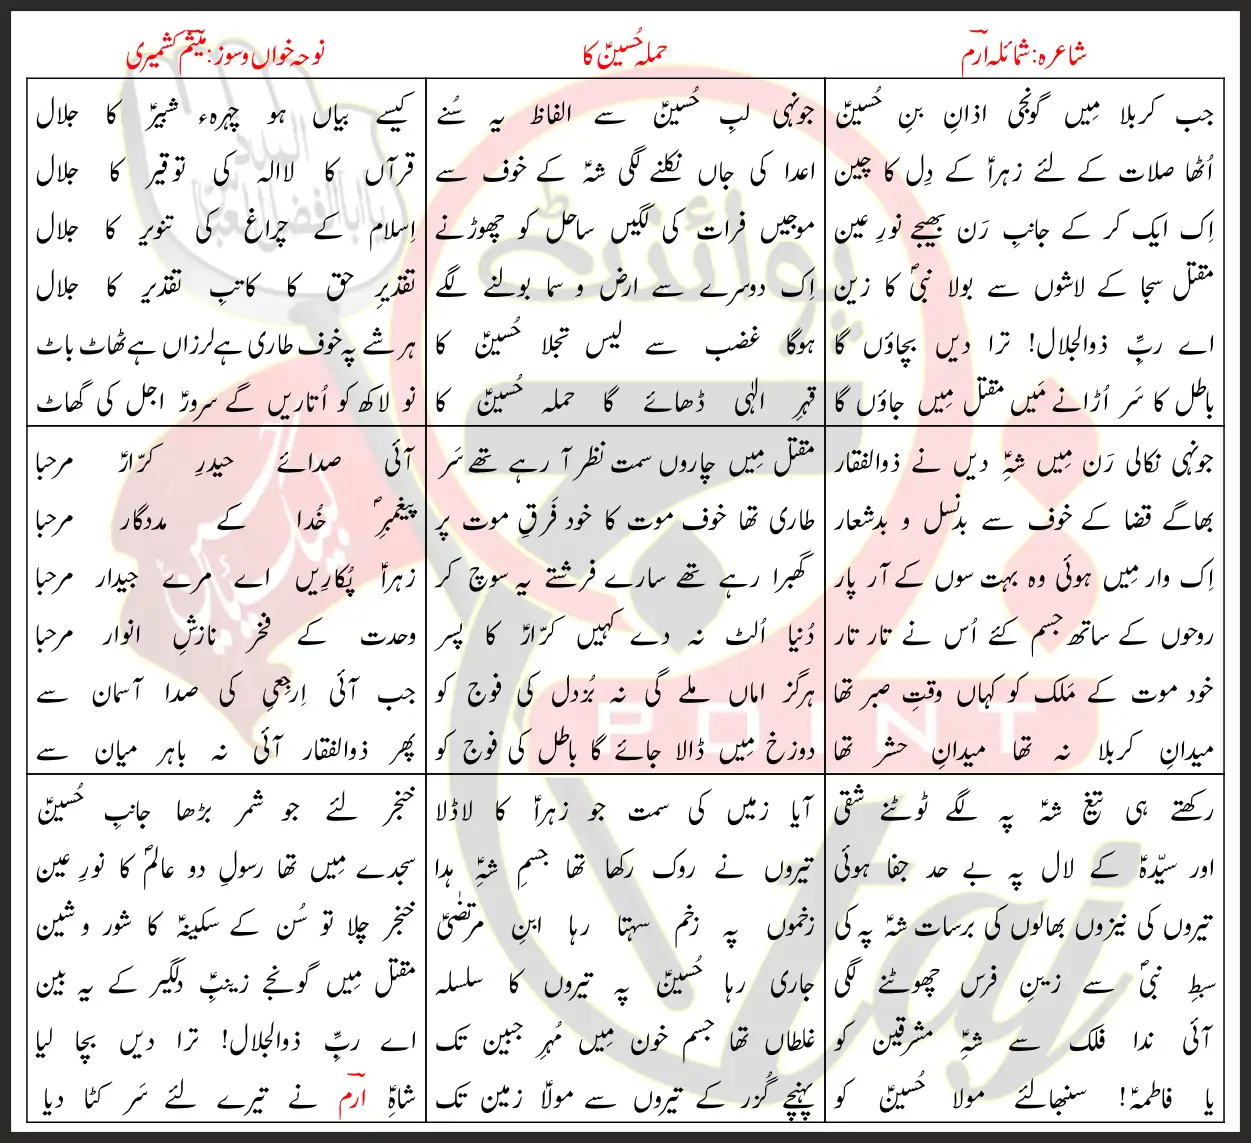 شاعرہ: شمائلہ ارمؔ
حملہ حُسینؑ کا
نوحہ خواں و سوز: میثمؔ کشمیری
جب کربلا مِیں گونجی اذانِ بنِ حُسینؑ
اُٹھا صلات کے لئے زہراؑ کے دِل کا چین
اِک ایک کر کے جانبِ رَن بھیجے نورِ عین
مقتل سجا کے لاشوں سے بولا نبیؐ کا زین
اے ربِّ ذوالجلال! ترا دیں بچاؤں گا
باطل کا سَر اُڑانے مَیں مقتل مِیں جاؤں گا
جونہی لبِ حُسینؑ سے الفاظ یہ سُنے
اعدا کی جاں نکلنے لگی شہؑ کے خوف سے
موجیں فرات کی لگیں ساحل کو چھوڑنے
اِک دوسرے سے ارض و سما بولنے لگے
ہوگا غضب سے لیس تجلا حُسینؑ کا
قہرِ الٰہی ڈھائے گا حملہ حُسینؑ کا
کیسے بیاں ہو چہرہء شبیرؑ کا جلال
قرآں کا لاالہ کی توقیر کا جلال
اِسلام کے چراغ کی تنویر کا جلال
تقدیرِ حق کا کاتبِ تقدیر کا جلال
ہر شے پہ خوف طاری ہے لرزاں ہے ٹھاٹ باٹ
نو لاکھ کو اُتاریں گے سرورؑ اجل کی گھاٹ
جونہی نکالی رَن مِیں شہِؑ دیں نے ذوالفقار
بھاگے قضا کے خوف سے بدنسل و بدشعار
اِک وار مِیں ہوئی وہ بہت سوں کے آر پار
روحوں کے ساتھ جسم کئے اُس نے تار تار
خود موت کے مَلک کو کہاں وقتِ صبر تھا
میدانِ کربلا نہ تھا میدانِ حشر تھا
مقتل مِیں چاروں سمت نظر آ رہے تھے سَر
طاری تھا خوف موت کا خود فَرقِ موت پر
گھبرا رہے تھے سارے فرشتے یہ سوچ کر
دُنیا اُلٹ نہ دے کہیں کرّارؑ کا پسر
ہرگز اماں ملے گی نہ بُزدل کی فوج کو
دوزخ مِیں ڈالا جائے گا باطل کی فوج کو
آئی صدائے حیدرِ کرّارؑ مرحبا
پیغمبرِؐ خُدا کے مددگار مرحبا
زہراؑ پُکارِیں اے مرے جیدار مرحبا
وحدت کے فخر نازشِ انوار مرحبا
جب آئی اِرجعِی کی صدا آسمان سے
پھر ذوالفقار آئی نہ باہر میان سے
رکھتے ہی تیغ شہؑ پہ لگے ٹوٹنے شقی
اور سیّدہؑ کے لال پہ بے حد جفا ہوئی
تیروں کی نیزوں بھالوں کی برسات شہؑ پہ کی
سبطِ نبیؐ سے زینِ فرس چھوٹنے لگی
آئی ندا فلک سے شہِؑ مشرقین کو
یا فاطمہؑ! سنبھالئے مولا حُسینؑ کو
آیا زمیں کی سمت جو زہراؑ کا لاڈلا
تیروں نے روک رکھا تھا جسمِ شہِؑ ہدا
زخموں پہ زخم سہتا رہا ابنِ مرتضٰیؑ
جاری رہا حُسینؑ پہ تیروں کا سلسلہ
غلطاں تھا جسم خون مِیں مُہرِ جبین تک
پہنچے گُزر کے تیروں سے مولاؑ زمین تک
خنجر لئے جو شمر بڑھا جانبِ حُسینؑ
سجدے مِیں تھا رسولِ دو عالمؐ کا نورِ عین
خنجر چلا تو سُن کے سکینہؑ کا شور و شین
مقتل مِیں گونجے زینبِؑ دلگیر کے یہ بین
اے ربِّ ذوالجلال! ترا دیں بچا لیا
شاہِؑ ارمؔ نے تیرے لئے سَر کٹا دیا
پوائنٹ
POINT
taj